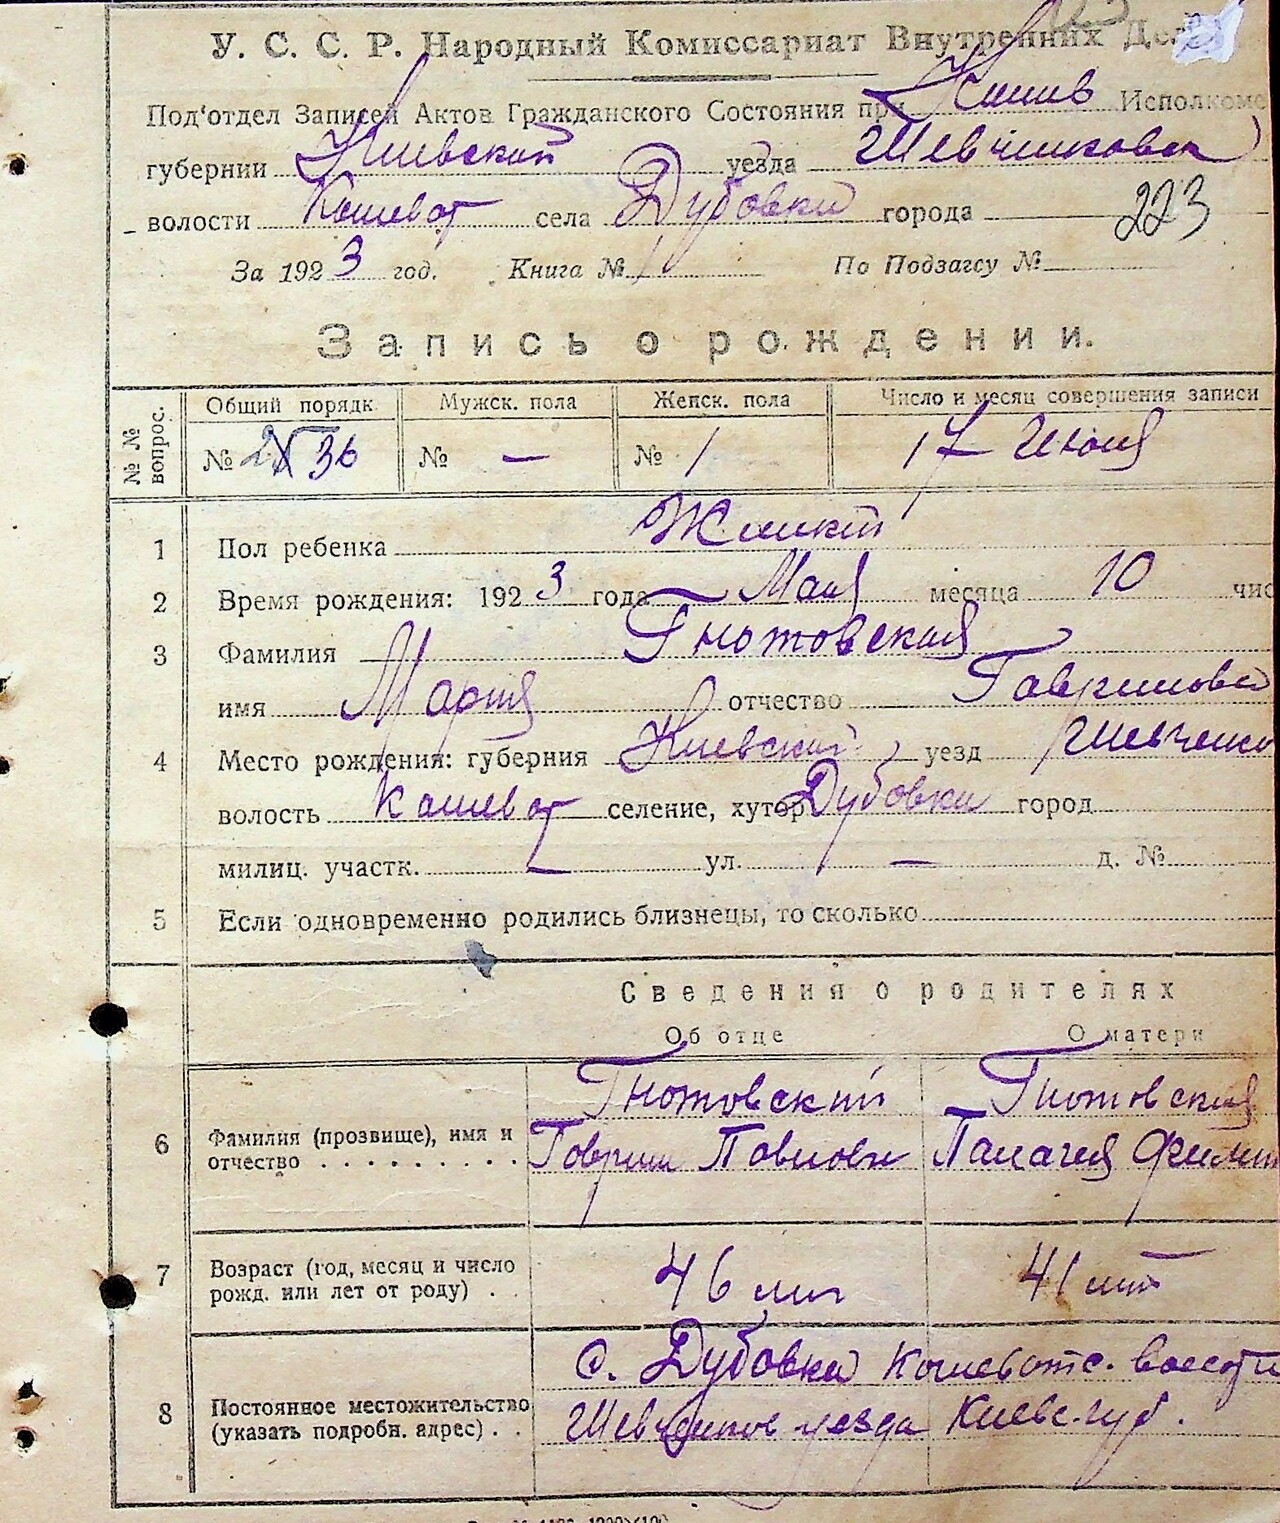 У. С. С. Р. Народный Комиссариат Внутренних Дел
Под'отдел Записей Актов Гражданского Состояния при Исполкоме
губернии Киевской уезда Шевченковск
волости Кошеват села Дубовки города 223
За 1923 год. Книга № 1 По Подзагсу №
Запись о рождении.
№ № вопрос. Общий порядк Мужск. пола Женск. пола Число и месяц совершения записи
№ 36 № — № 1 17 Июня
1 Пол ребенка
2 Время рождения: 1923 года Мая месяца 10 чис
3 Фамилия Гнотовская
имя Мария отчество Гавриловн
4 Место рождения: губерния Киевская уезд Шевченко
волость Кошеват селение, хутор Дубовки город
милиц. участк. — ул. — д. №
5 Если одновременно родились близнецы, то сколько
Сведения о родителях
Об отце О матери
Гнотовский Гнотовская
6 Фамилия (прозвище), имя и
отчество . . . . . . . . . Гаврил Павлови Палагея Филип
7 Возраст (год, месяц и число
рожд. или лет от роду) . . 46 лет 41 лет
с. Дубовки Кошеватс. волости
8 Постоянное местожительство
(указать подробн. адрес) . . Шевченков уезда Киевс. губ.